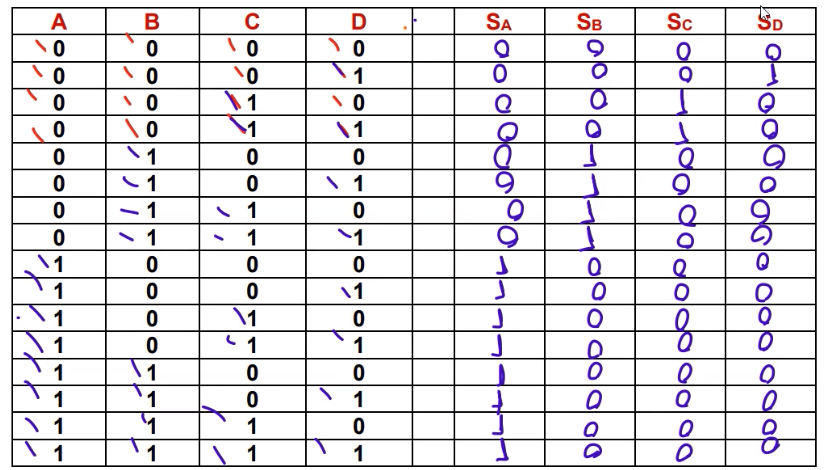 A B C D SA SB SC SD
0 0 0 0 0 0 0 0
0 0 0 1 0 0 0 1
0 0 1 0 0 0 1 0
0 0 1 1 0 0 1 0
0 1 0 0 0 1 0 0
0 1 0 1 0 1 0 0
0 1 1 0 0 1 0 0
0 1 1 1 0 1 0 0
1 0 0 0 1 0 0 0
1 0 0 1 1 0 0 0
1 0 1 0 1 0 0 0
1 0 1 1 1 0 0 0
1 1 0 0 1 0 0 0
1 1 0 1 1 0 0 0
1 1 1 0 1 0 0 0
1 1 1 1 1 0 0 0